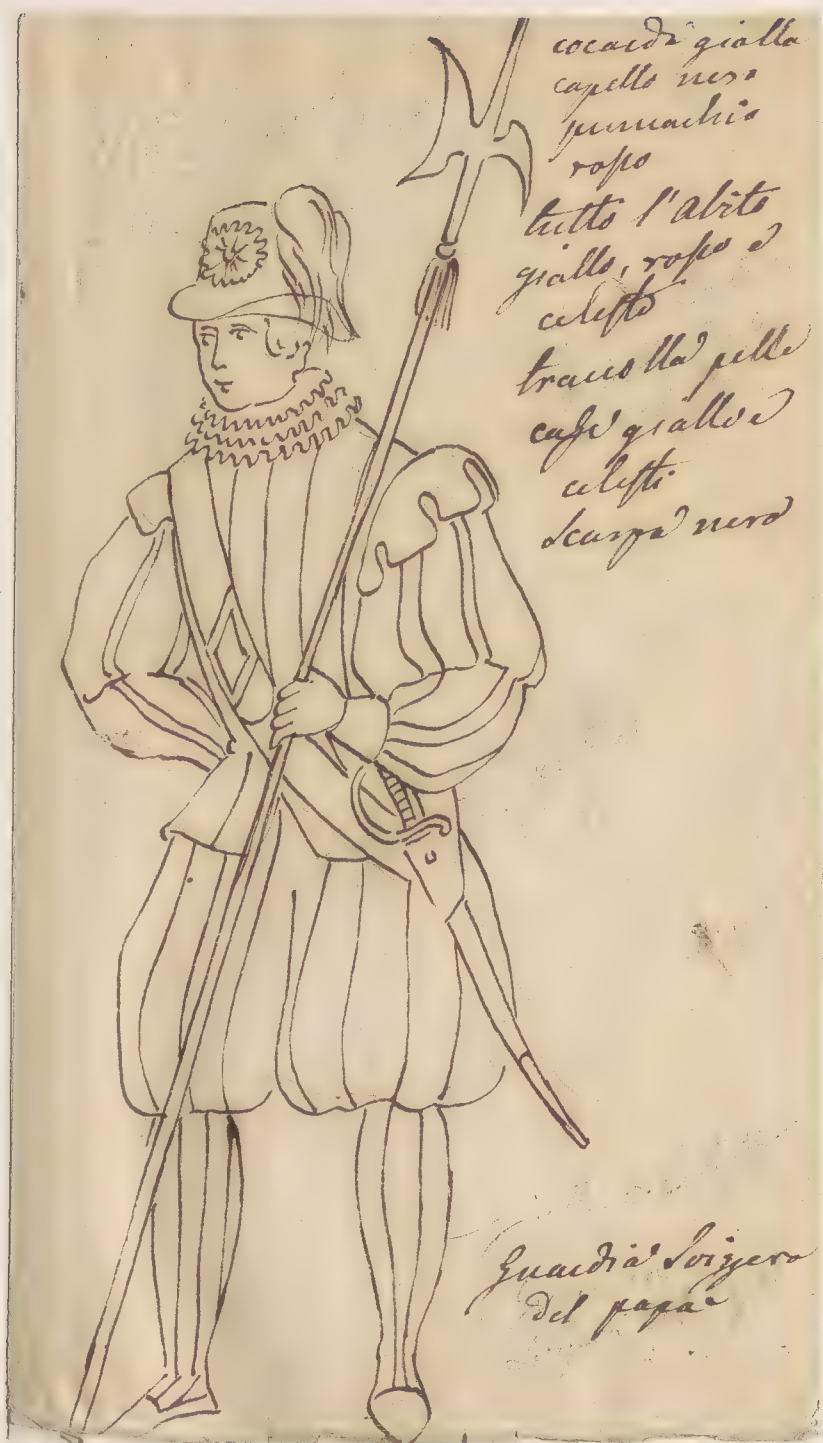 cocarda gialla
capello nero
pennachio
rosso
tutto l'abito
giallo, rosso e
celeste
tracolla pelle
calze gialle e
celesti
Scarpe nere
Guardia Svizzera
del papa